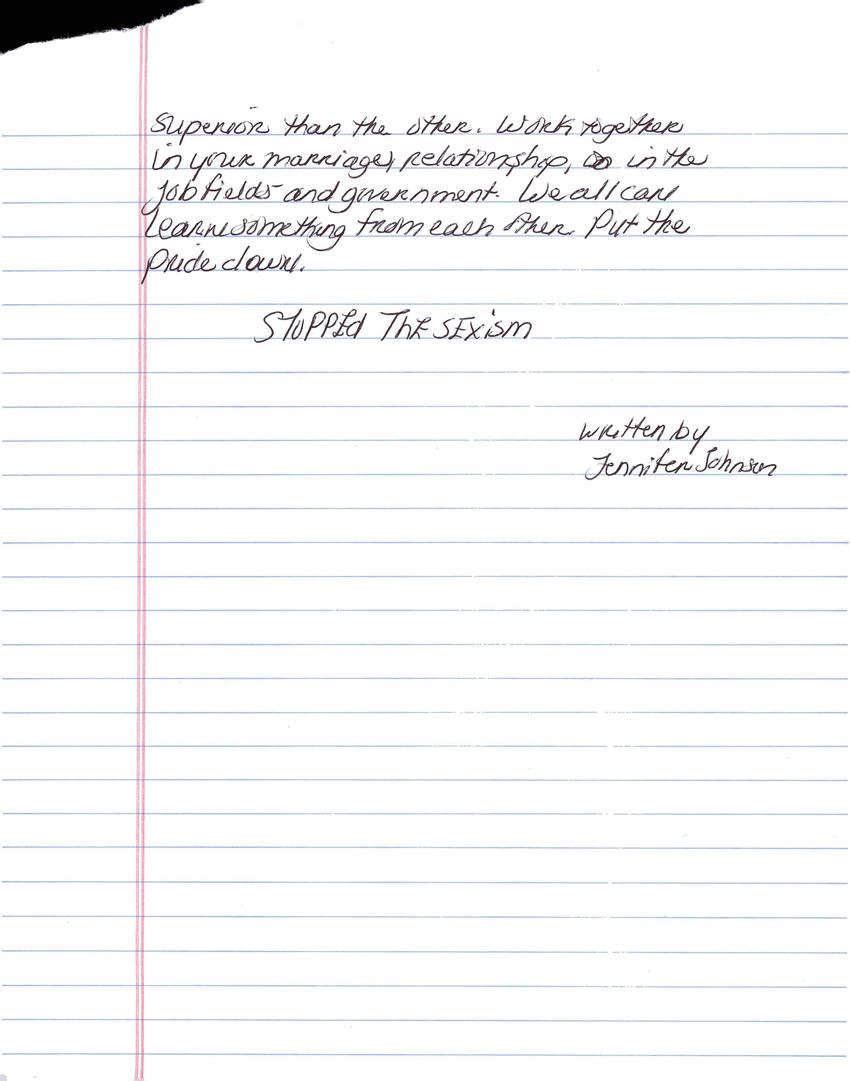 Superior than the other. Work together
in your marriage, relationship, in the
job fields and government. We all can
learn something from each other. Put the
pride down.
STOPPEd ThE SExism
written by
Jennifer Johnson